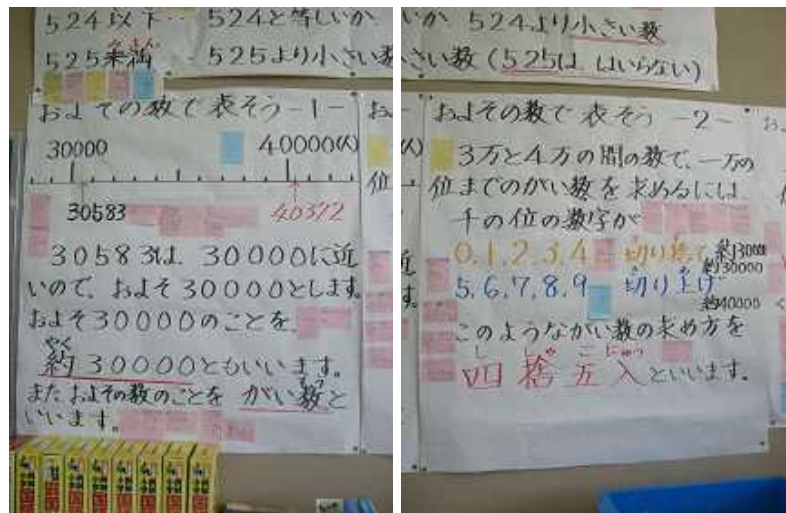 524以下‥524と等しいか
525未満 525より小さい数
およその数で表そう-1-
30000 40000(人)
30583 40372
30583は、30000に近
いので、およそ30000とします。
およそ30000のことを、
やく
約30000ともいいます。
またおよその数のことを がい数と
いいます。
いか 524より小さい数
さい数(525は はいらない)
およその数で 表そう -2-
3万と4万の間の数で、一万の
位までのがい数を求めるには、
千の位の数字が
0,1,2,3,4 切り捨て 約30000
約30000
5,6,7,8,9 切り上げ
約40000
このようながい数の求め方を
し しゃ ご にゅう
四捨五入といいます。